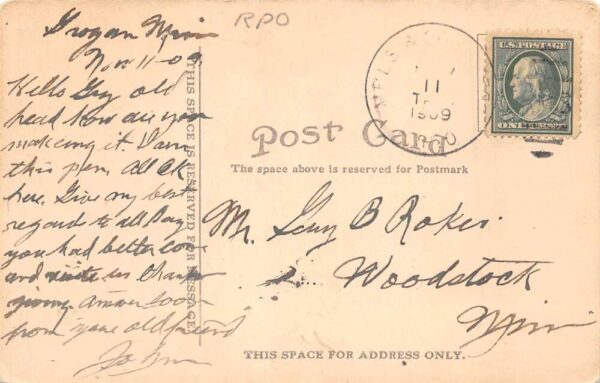 Grogan Minn
Nov 11-09
Hello Guy old
head how are you
makeing it. I am
this pm. all ok
here. Give my best
regard to all Say
you had better come
and visit us thanks
giving answer soon
from your old friend
John
THIS SPACE IS RESERVED FOR MESSAGE
RPO
MPLS &
11
1909
R.P.O
U.S. POSTAGE
ONE
Post Card
The space above is reserved for Postmark
Mr. Guy B Rokes
Woodstock
Minn
THIS SPACE FOR ADDRESS ONLY.